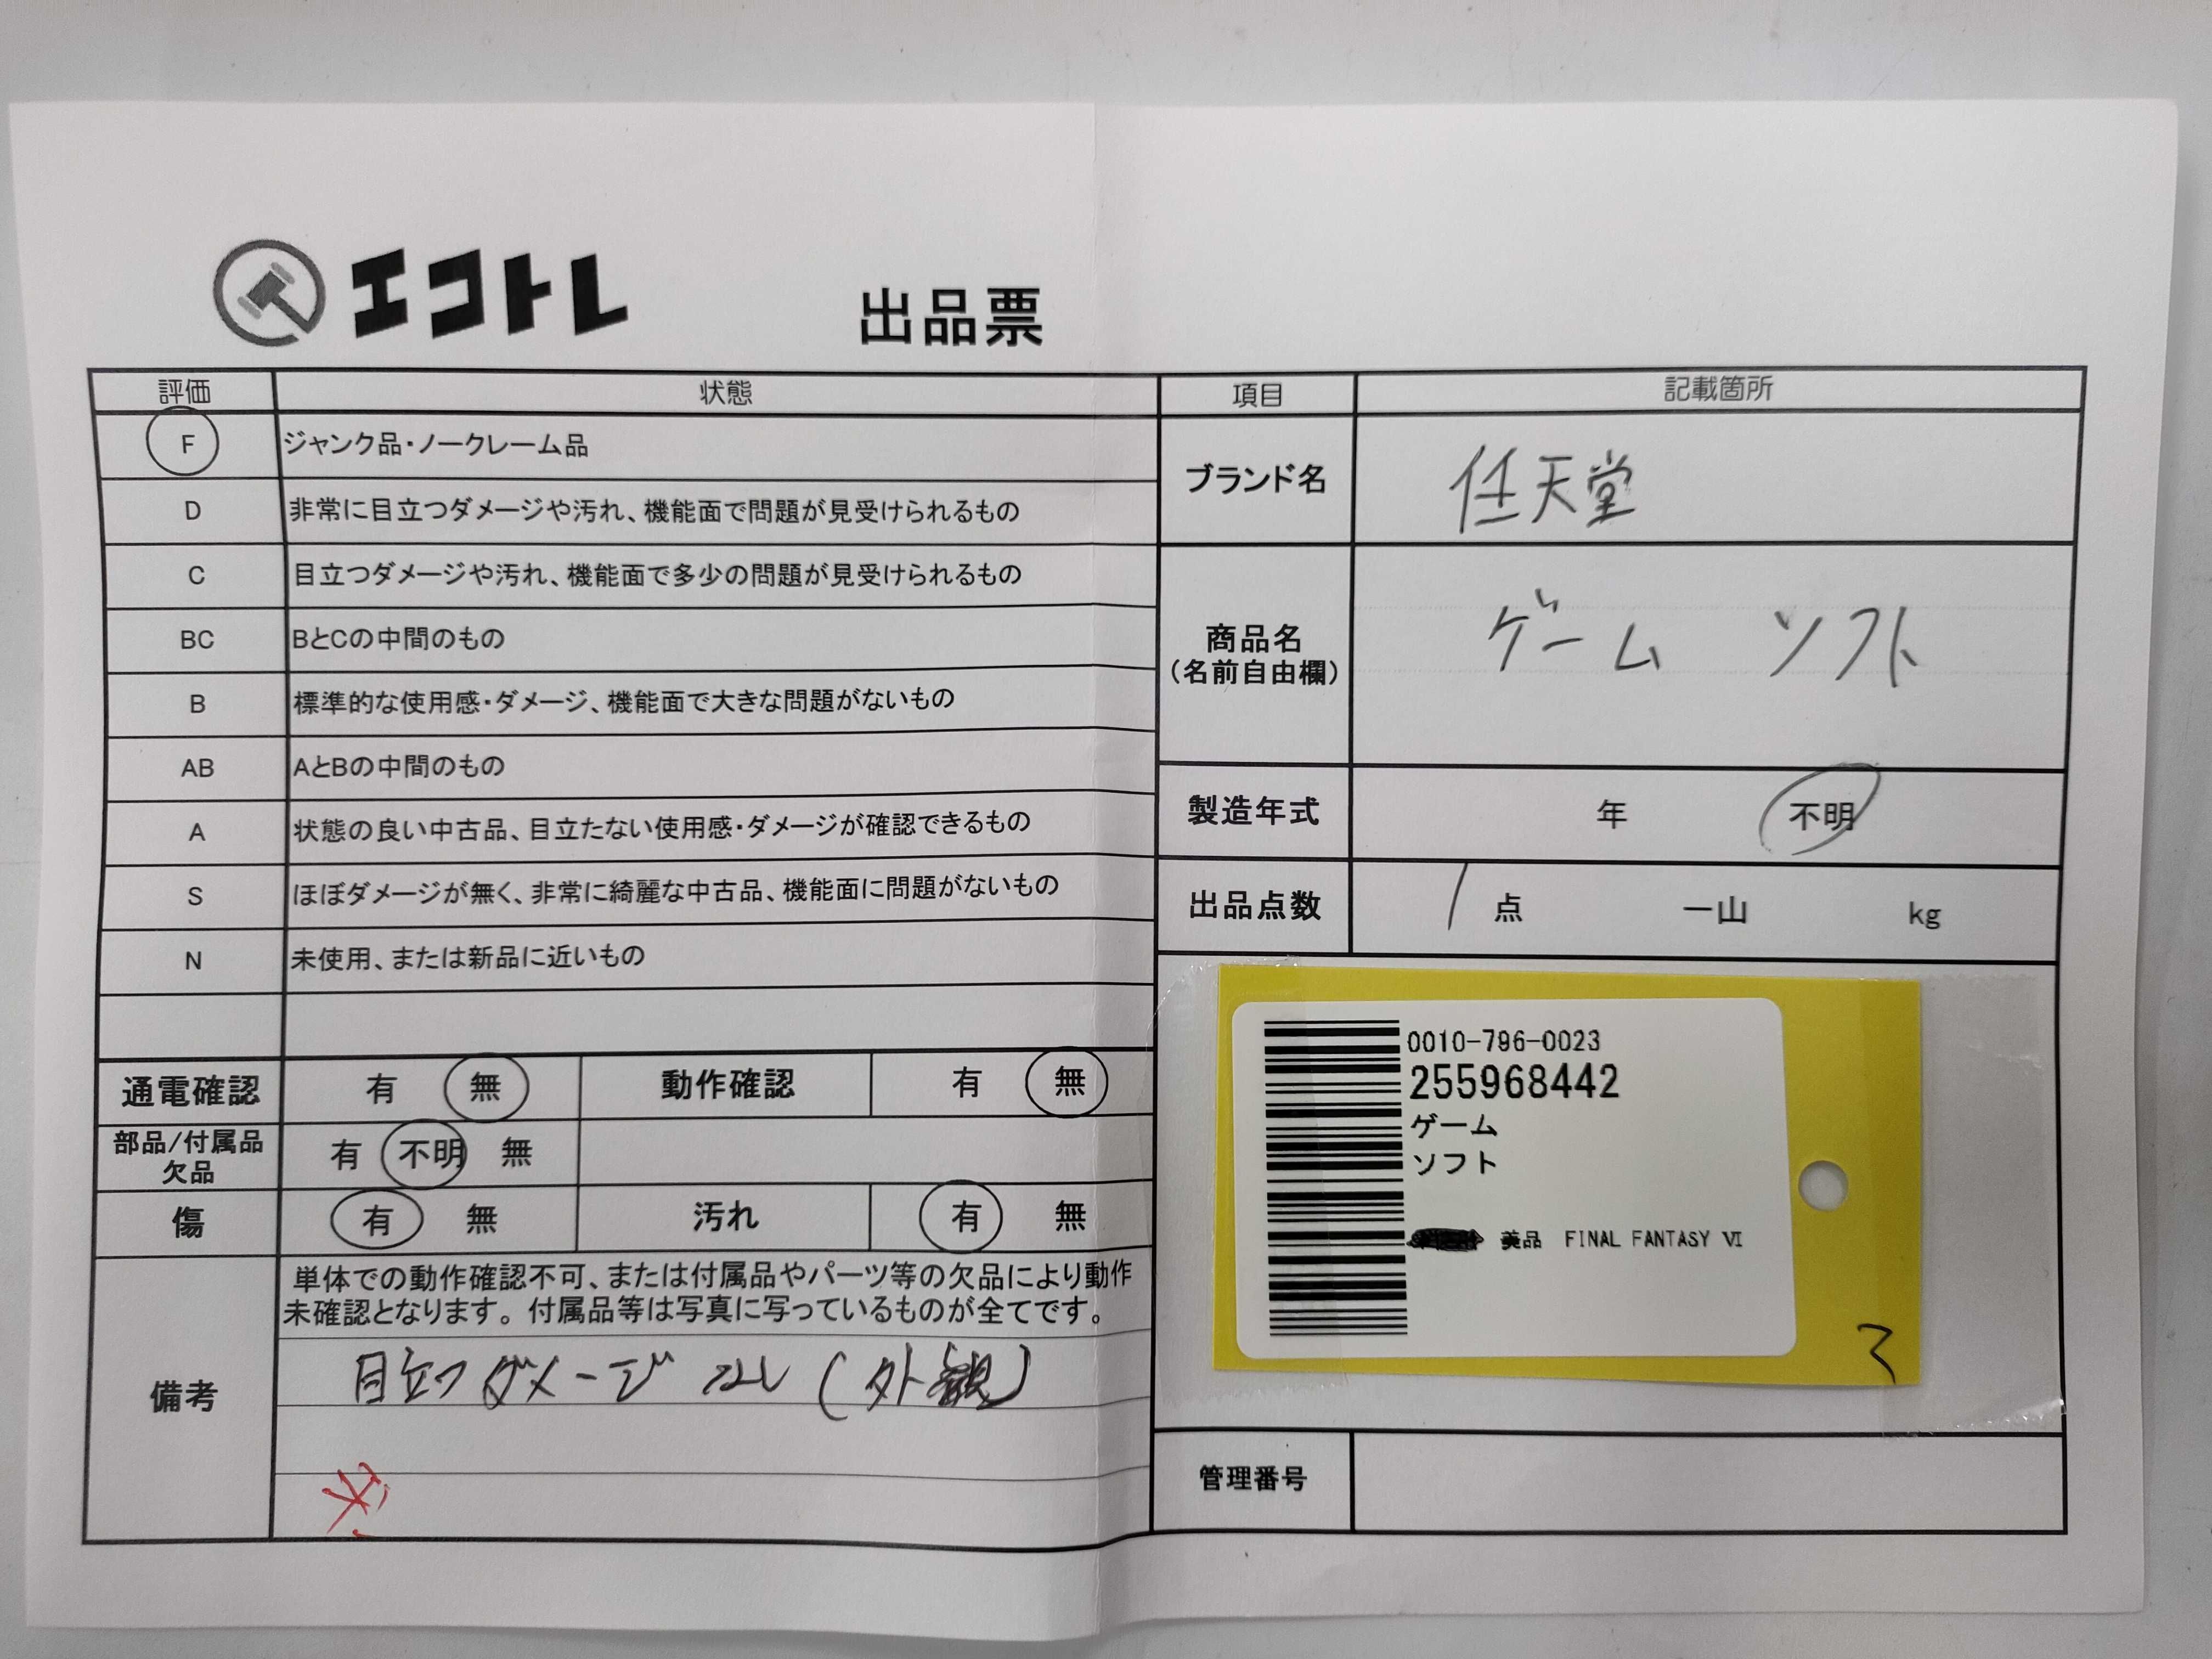 エコトレ
出品票
評価 状態
F ジャンク品・ノークレーム品
D 非常に目立つダメージや汚れ、機能面で問題が見受けられるもの
C 目立つダメージや汚れ、機能面で多少の問題が見受けられるもの
BC BとCの中間のもの
B 標準的な使用感・ダメージ、機能面で大きな問題がないもの
AB AとBの中間のもの
A 状態の良い中古品、目立たない使用感・ダメージが確認できるもの
S ほぼダメージが無く、非常に綺麗な中古品、機能面に問題がないもの
N 未使用、または新品に近いもの
通電確認 有 無 動作確認 有 無
部品/付属品
欠品 有 不明 無
傷 有 無 汚れ 有 無
備考
単体での動作確認不可、または付属品やパーツ等の欠品により動作
未確認となります。付属品等は写真に写っているものが全てです。
目立つダメージ (外観)
項目 記載箇所
ブランド名 任天堂
商品名
(名前自由欄)
ゲーム ソフト
製造年式 年 不明
出品点数 1 点 一山 kg
0010-796-0023
255968442
ゲーム
ソフト
美品 FINAL FANTASY Ⅵ
管理番号